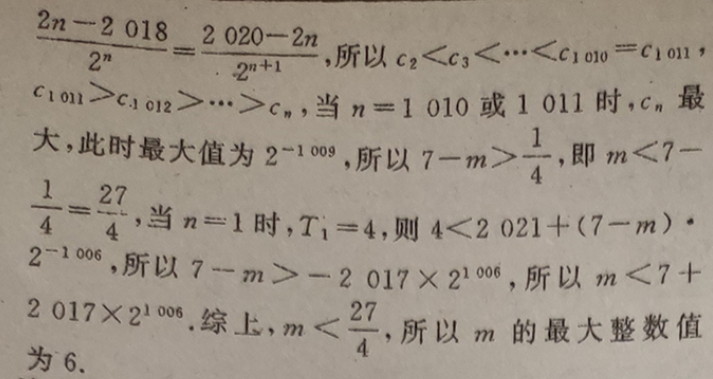 $\frac{2n-2\ 018}{2^n}=\frac{2\ 020-2n}{2^{n+1}}$,所以 $c_2<c_3<\cdots<c_{1\ 010}=c_{1\ 011}$,
$c_{1\ 011}>c_{1\ 012}>\cdots>c_n$,当 $n=1\ 010$ 或 $1\ 011$ 时,$c_n$ 最
大,此时最大值为 $2^{-1\ 009}$,所以 $7-m>\frac{1}{4}$,即 $m<7-$
$\frac{1}{4}=\frac{27}{4}$,当 $n=1$ 时,$T_1=4$,则 $4<2\ 021+(7-m)\cdot$
$2^{-1\ 006}$,所以 $7-m>-2\ 017\times2^{1\ 006}$,所以 $m<7+$
$2\ 017\times2^{1\ 006}$.综上,$m<\frac{27}{4}$,所以 $m$ 的最大整数值
为 6.